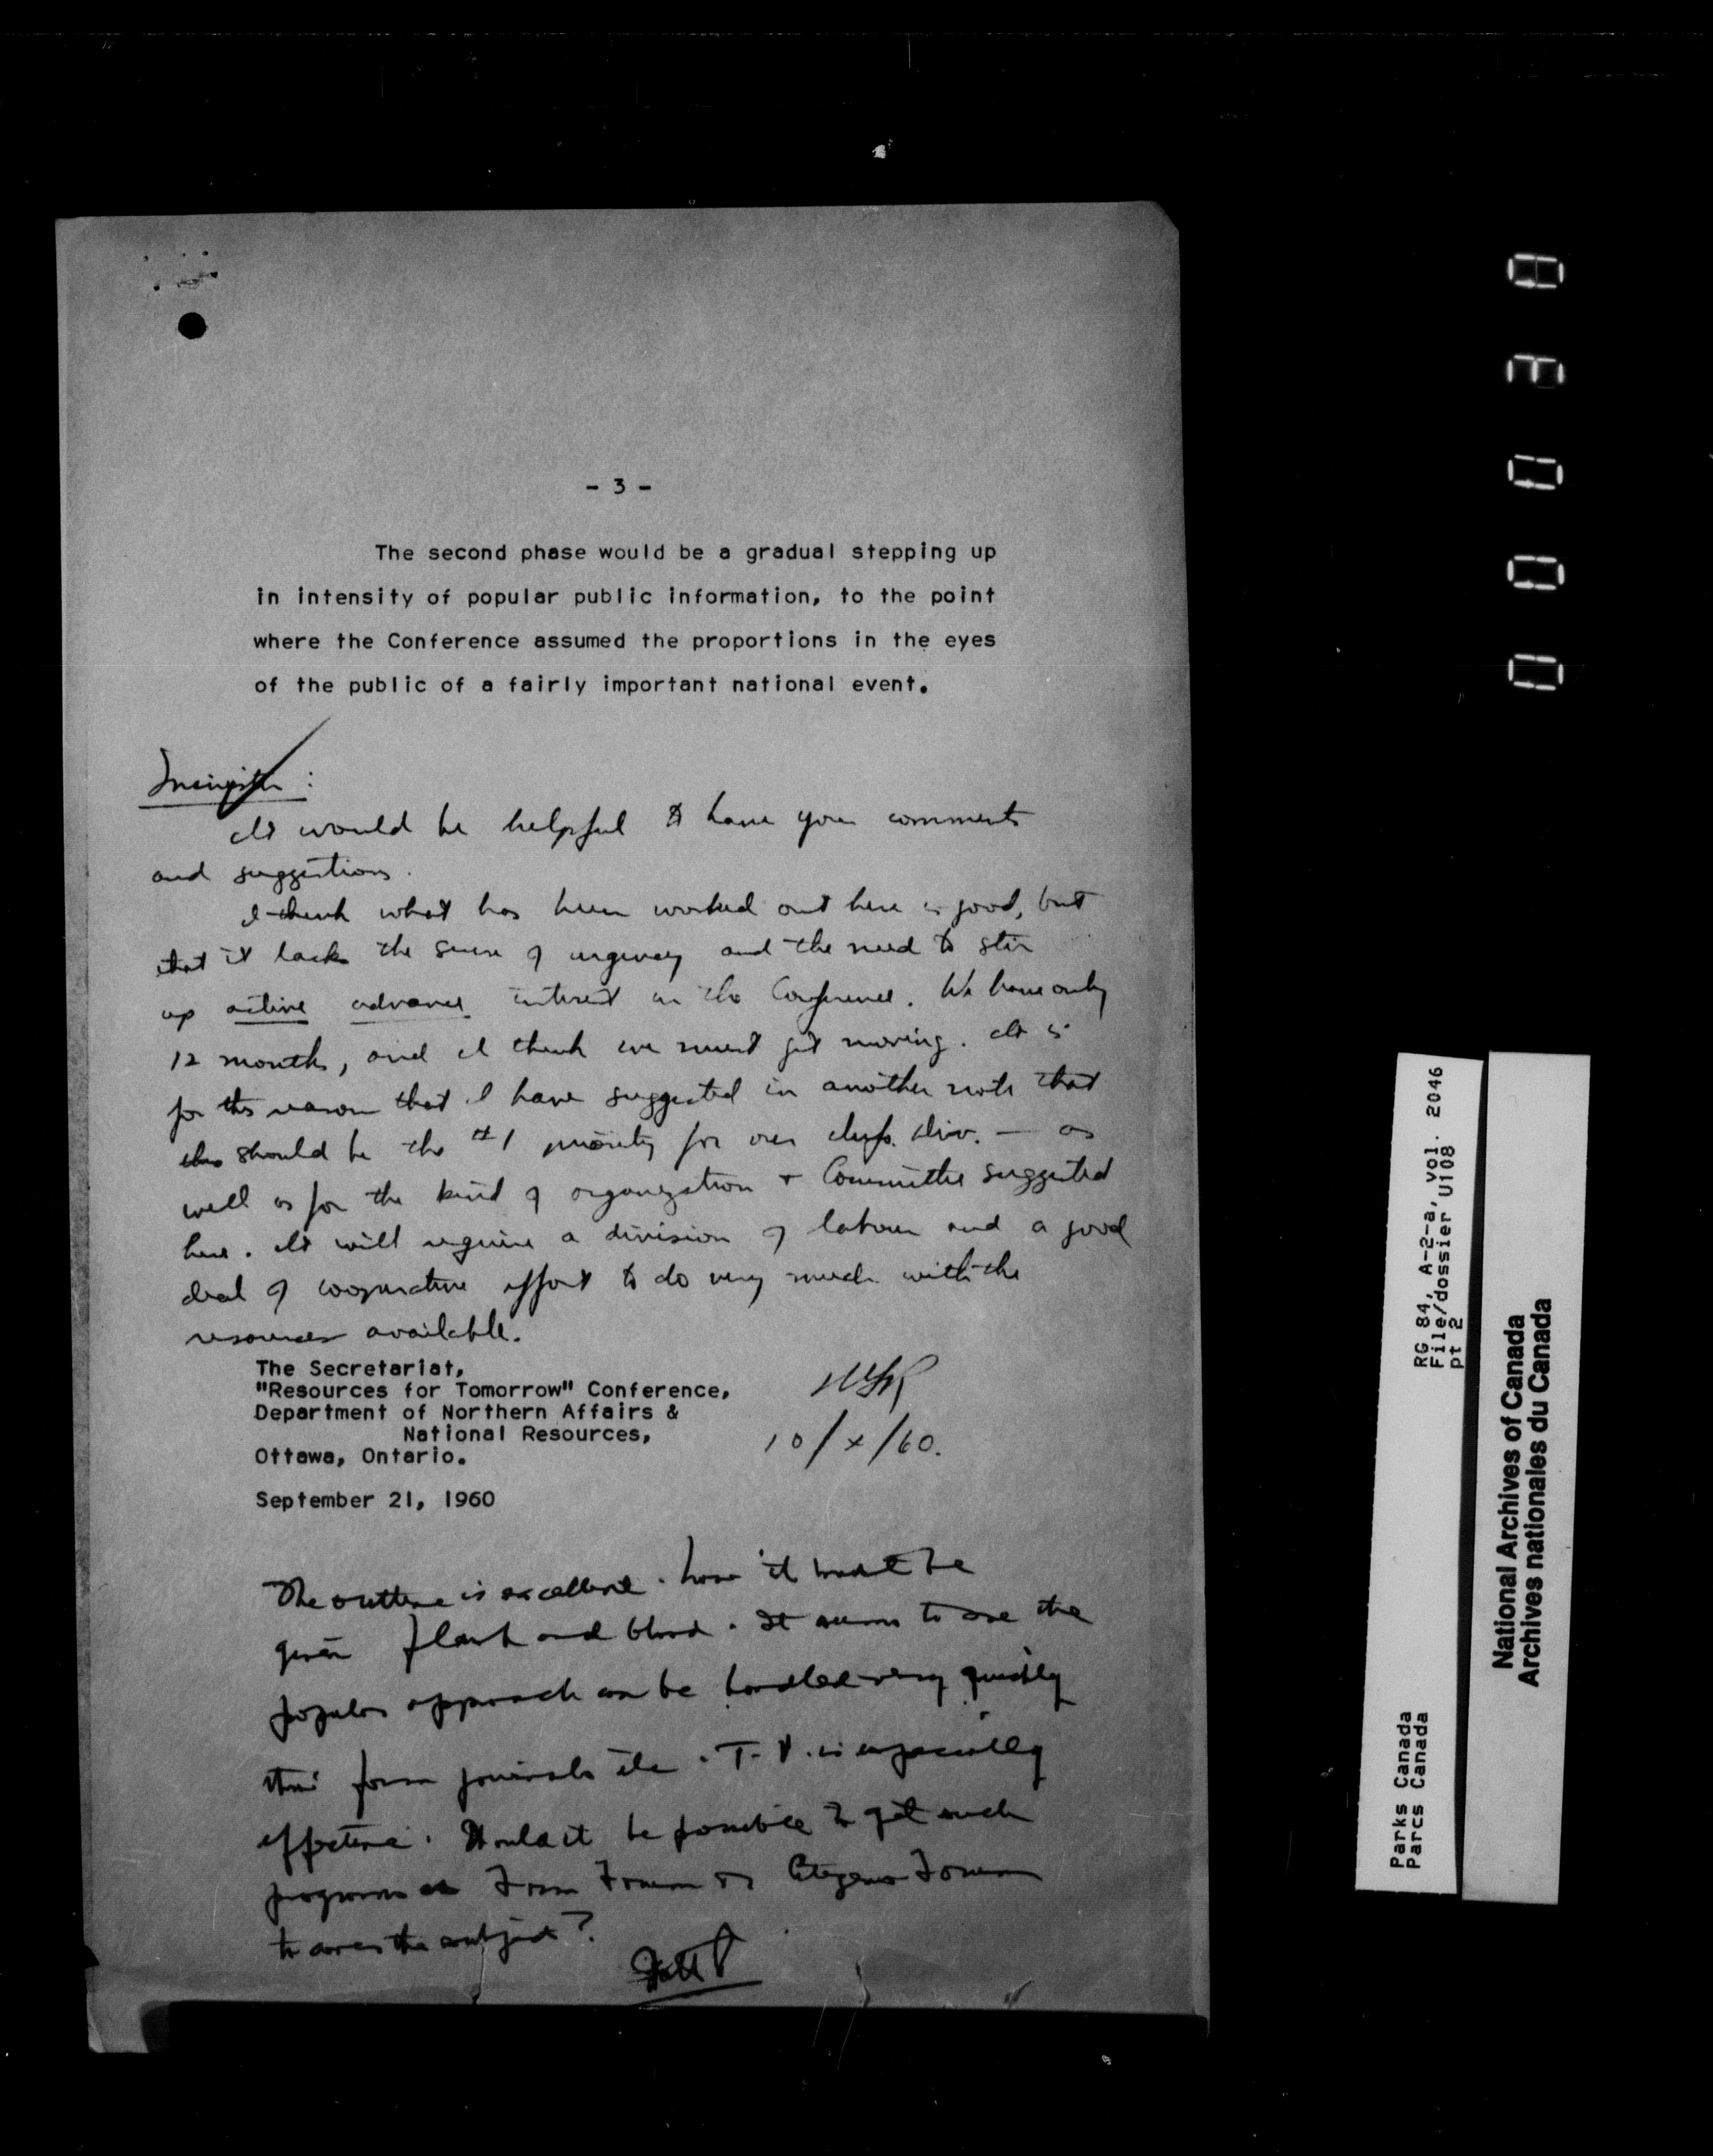 - 3 -
The second phase would be a gradual stepping up
in intensity of popular public information, to the point
where the Conference assumed the proportions in the eyes
of the public of a fairly important national event.
It would be helpful to have your comments
and suggestions.
I think what has been worked out here is good, but
that it lacks the sense of urgency and the need to stir
up active advance interest in the Conference. We have only
12 months, and I think we must get moving. It is
for this reason that I have suggested in another note that
this should be the #1 priority for our div. — as
well as for the kind of organization + Committee suggested
here. It will require a division of labour and a good
deal of cooperative effort to do very much with the
resources available.
The Secretariat,
"Resources for Tomorrow" Conference,
Department of Northern Affairs &
National Resources,
Ottawa, Ontario.
10/x/60.
September 21, 1960
The outline is excellent. Now it must be
given flesh and blood. It seems to me the
popular approach can be handled very quickly
thro' farm journals etc. T.V. is especially
effective. Would it be possible to get such
programs as Farm Forum or Citizens Forum
to cover the subject?
000030
RG 84, A-2-a, vol. 2046
File/dossier U108
pt 2
Parks Canada
Parcs Canada
National Archives of Canada
Archives nationales du Canada